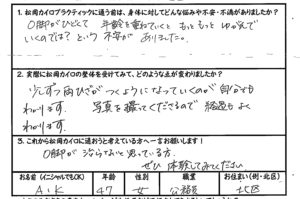 1. 松岡カイロプラクティックに通う前は、身体に対してどんな悩みや不安・不満がありましたか?
O脚がひどくて 年齢を重ねていくと もっともっと ゆがんで
いくのでは?という 不安が ありました。
2. 実際に松岡カイロの整体を受けてみて、どのような点が変わりましたか?
少しずつ両ひざがつくようになっていくのが自分でも
わかります。 写真を撮ってくださるので 経過もよく
わかります
3. これから松岡カイロに通おうと考えている方へ一言お願いします!
O脚が 治らないと思っている方、
ぜひ 体験してみてください
お名前(イニシャルでもOK) 年齢 性別 職業 お住まい(例・北区)
A・K 47 女 公務員 北区